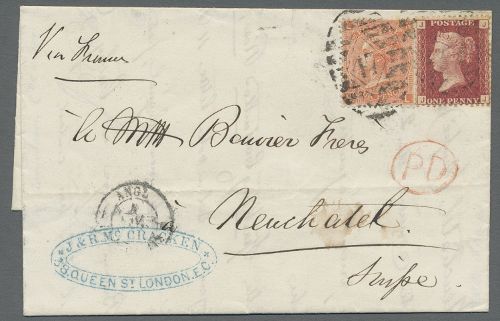 Via France
POSTAGE
J J
J J
ONE PENNY
à MM Bouvier Frères
PD
ANGL
Neuchatel.
J & R. Mc. CRACKEN
QUEEN ST LONDON. E.C.
Suisse